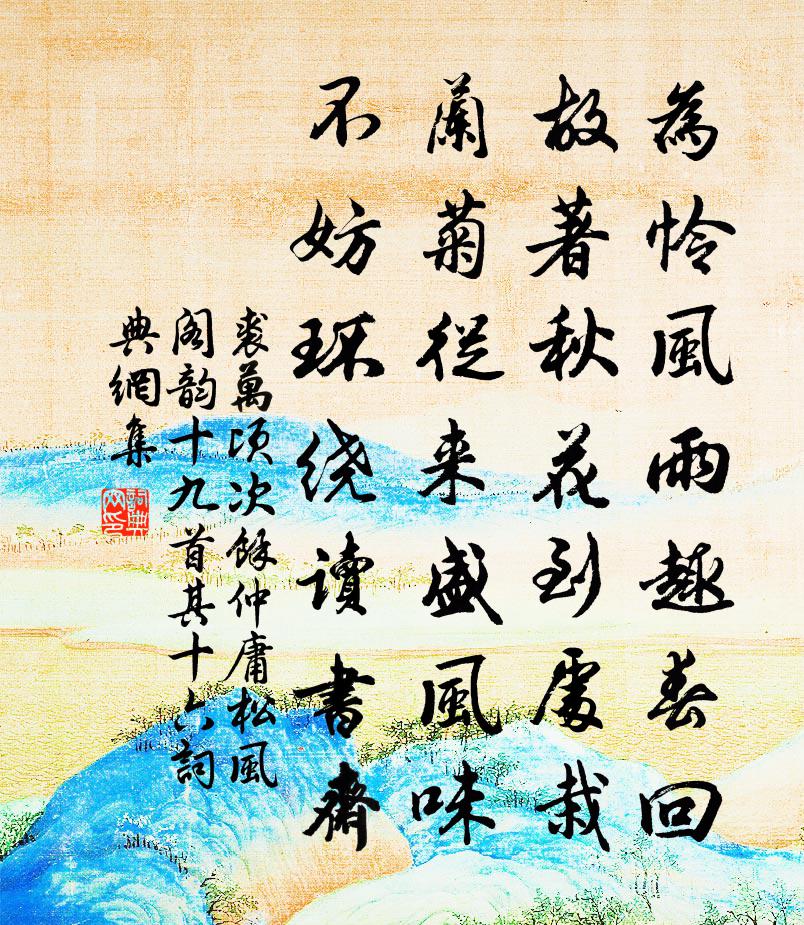 為怜風雨趣春回
故著秋花到處栽
蘭菊從来盛風味
不妨环绕讀書齋
裘萬頃次餘仲庸松風
阁韵十九首其十六詞
典網集
詞典